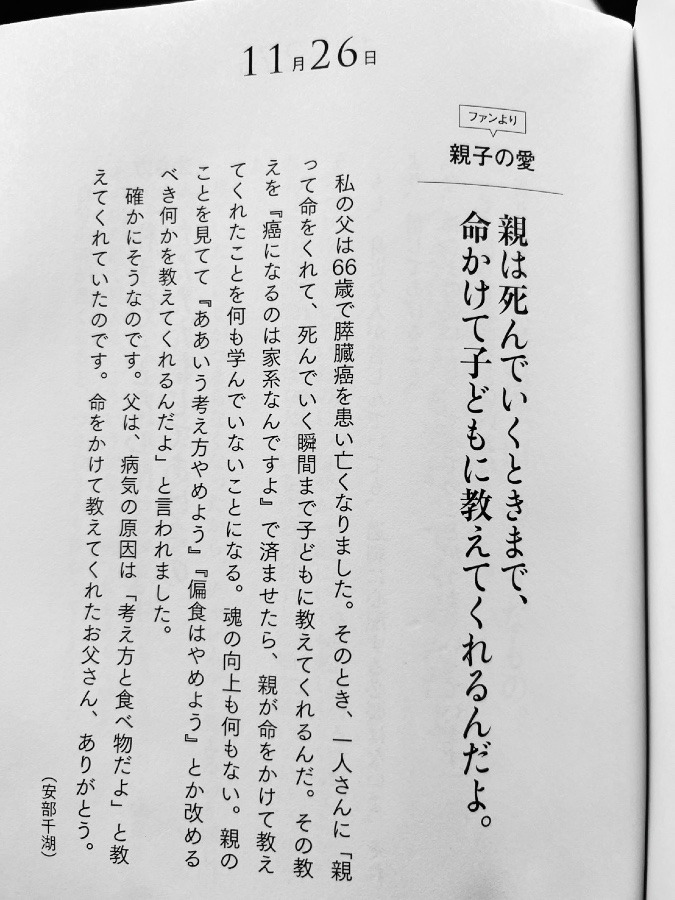 11月26日
ファンより
親子の愛
親は死んでいくときまで、
命かけて子どもに教えてくれるんだよ。
私の父は66歳で膵臓癌を患い亡くなりました。そのとき、一人さんに「親
って命をくれて、死んでいく瞬間まで子どもに教えてくれるんだ。その教
えを『癌になるのは家系なんですよ』で済ませたら、親が命をかけて教え
てくれたことを何も学んでいないことになる。魂の向上も何もない。親の
ことを見てて『ああいう考え方やめよう』『偏食はやめよう』とか改める
べき何かを教えてくれるんだよ」と言われました。
確かにそうなのです。父は、病気の原因は「考え方と食べ物だよ」と教
えてくれていたのです。命をかけて教えてくれたお父さん、ありがとう。
（安部千湖）